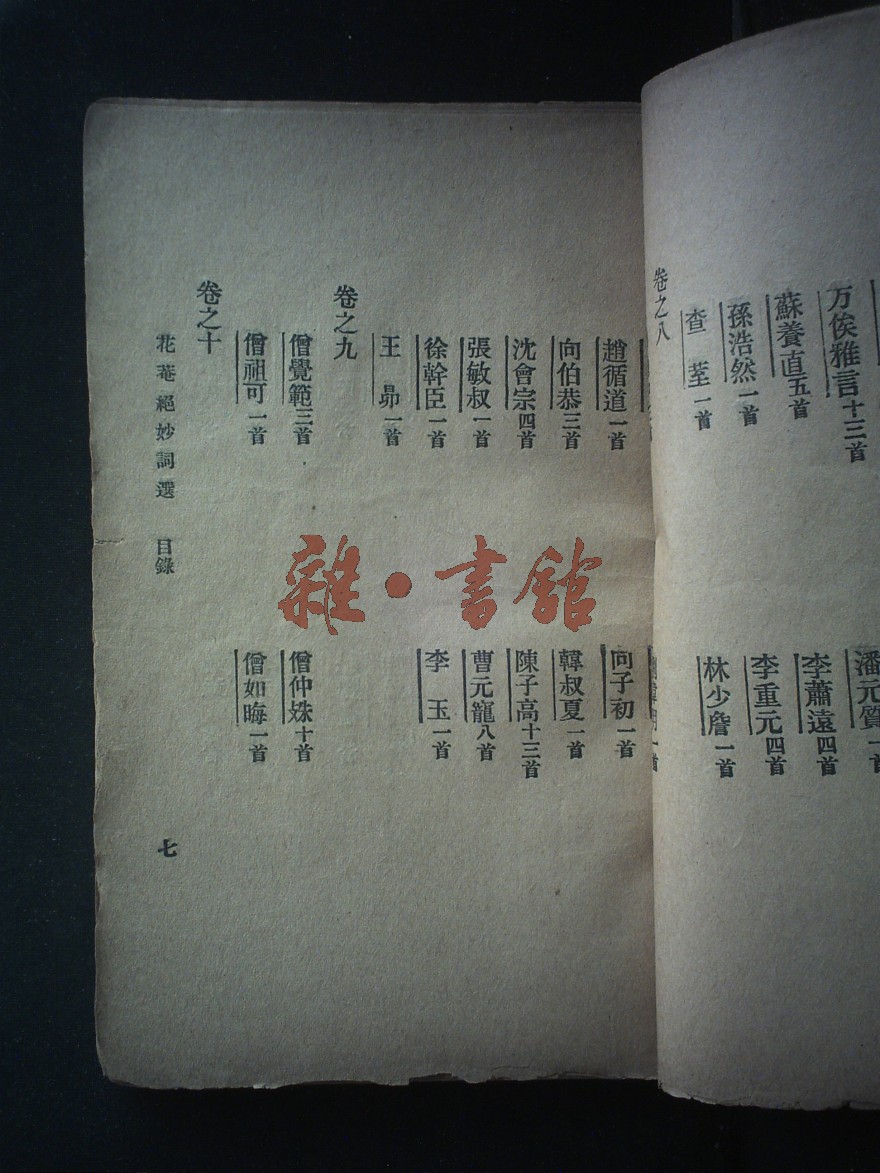 万俟雅言十三首
潘元質一首
蘇養直五首
李蕭遠四首
孫浩然一首
李重元四首
查荎一首
林少詹一首
卷之八
趙循道一首
向子初一首
向伯恭三首
韓叔夏一首
沈會宗四首
陳子高十三首
張敏叔一首
曹元寵八首
徐幹臣一首
李玉一首
王昴一首
卷之九
僧覺範三首
僧仲姝十首
僧祖可一首
僧如晦一首
卷之十
花菴絕妙詞選 目錄
七
雜·書館